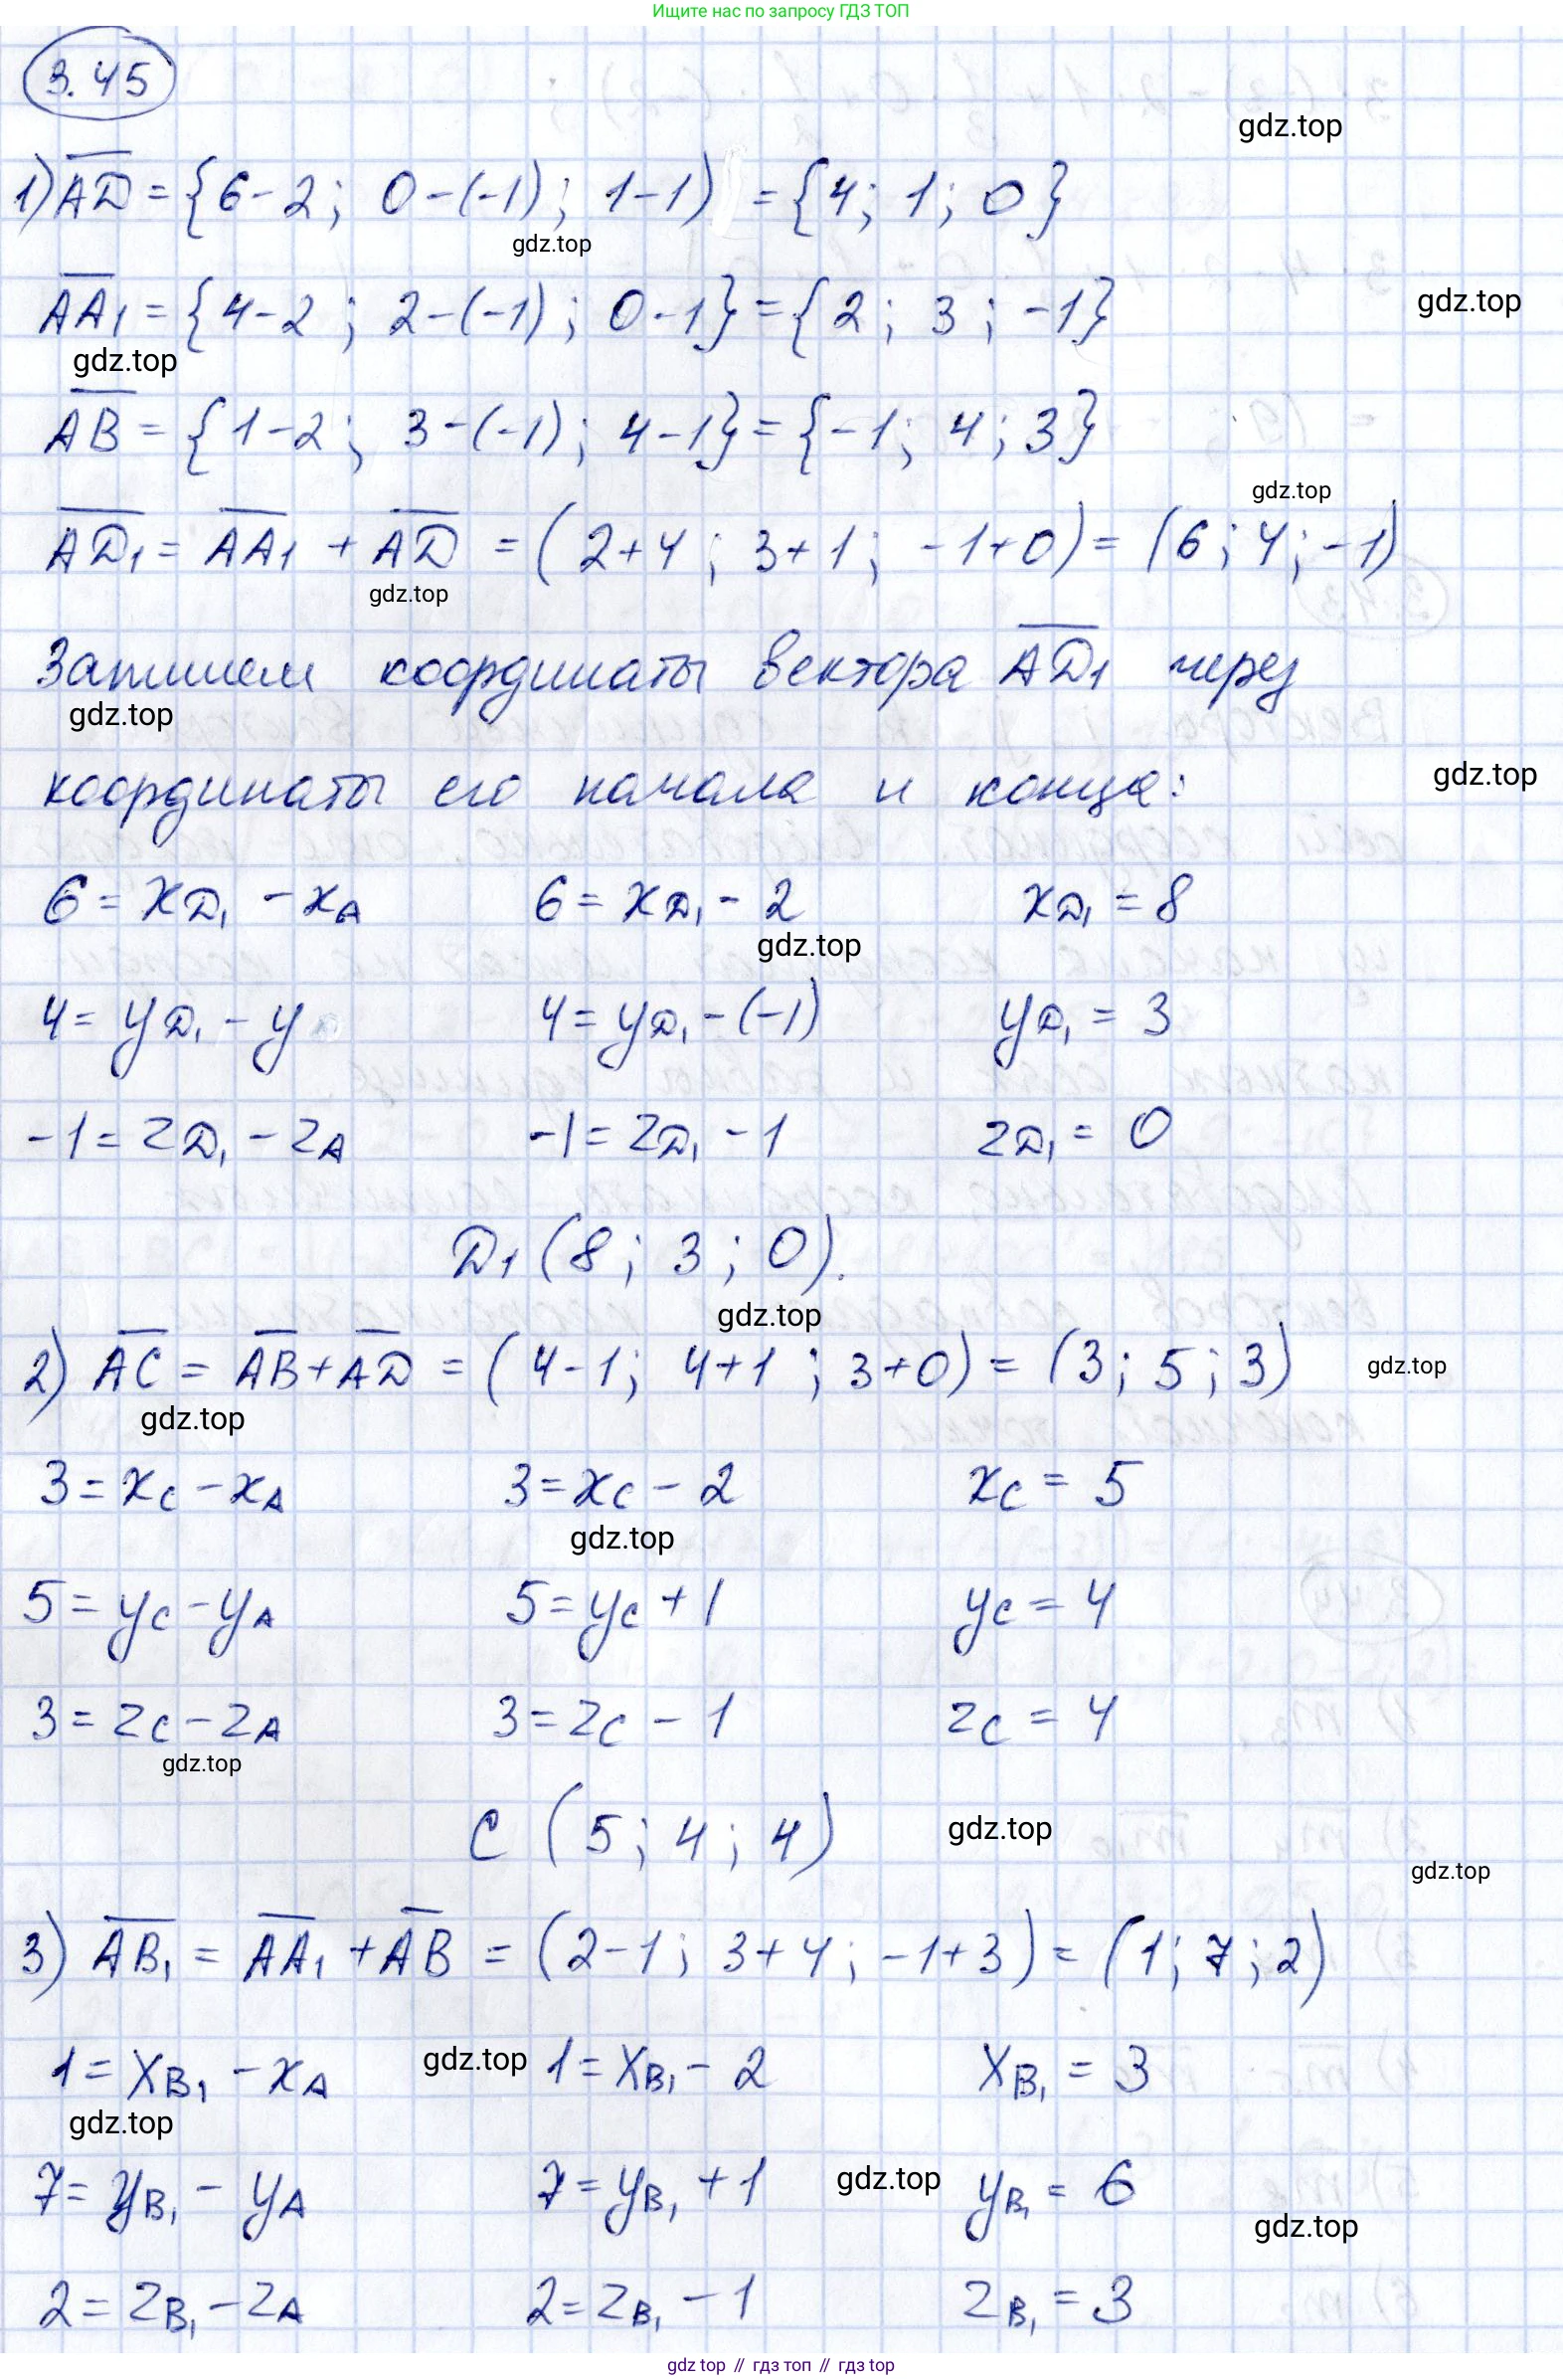 Ищите нас по запросу ГДЗ ТОП
3.45
gdz.top
1) AD = {6-2; 0-(-1); 1-1) = {4; 1; 0}
gdz.top
AA₁ = {4-2; 2-(-1); 0-1} = {2; 3; -1}
gdz.top
gdz.top
AB = {1-2; 3-(-1); 4-1} = {-1; 4; 3}
gdz.top
AD₁ = AA₁ + AD = (2+4; 3+1; -1+0) = (6; 4; -1)
gdz.top
Запишем координаты вектора AD₁ через
gdz.top
координаты его начала и конца:
gdz.top
6 = xD₁ - xA 6 = xD₁ - 2 xD₁ = 8
gdz.top
4 = yD₁ - y 4 = yD₁ - (-1) yD₁ = 3
-1 = zD₁ - zA -1 = zD₁ - 1 zD₁ = 0
D₁ (8; 3; 0).
gdz.top
2) AC = AB + AD = (4-1; 4+1; 3+0) = (3; 5; 3)
gdz.top
gdz.top
3 = xC - xA 3 = xC - 2 xC = 5
gdz.top
5 = yC - yA 5 = yC + 1 yC = 4
3 = zC - zA 3 = zC - 1 zC = 4
gdz.top
C (5; 4; 4)
gdz.top
gdz.top
3) AB₁ = AA₁ + AB = (2-1; 3+4; -1+3) = (1; 7; 2)
1 = xB₁ - xA gdz.top 1 = xB₁ - 2 xB₁ = 3
gdz.top
7 = yB₁ - yA 7 = yB₁ + 1 gdz.top yB₁ = 6
gdz.top
2 = zB₁ - zA 2 = zB₁ - 1 zB₁ = 3
gdz top // гдз топ // гдз top